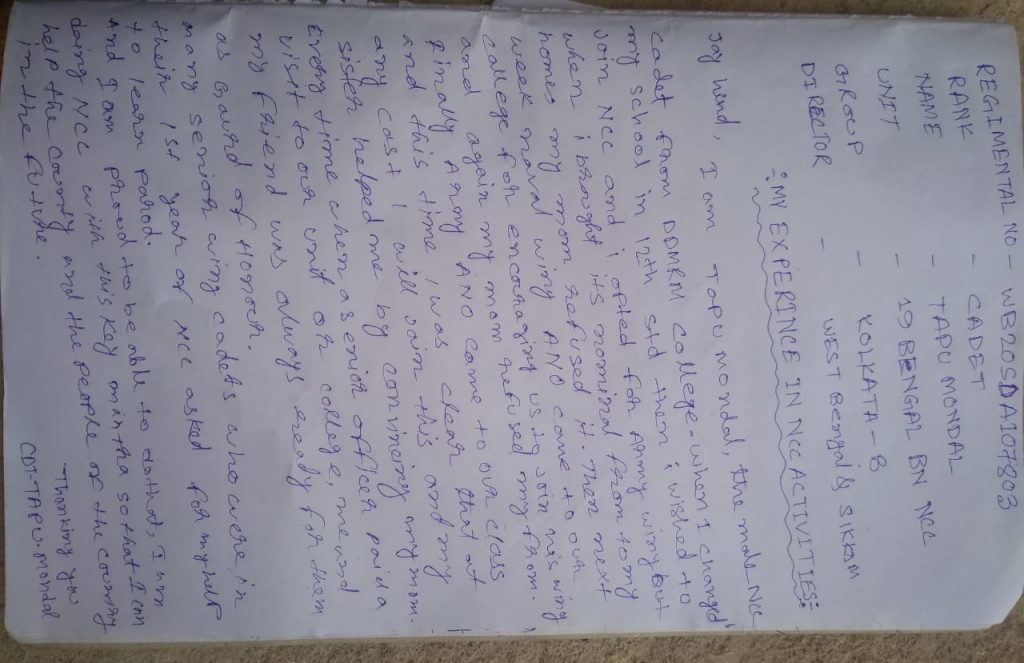 REGIMENTAL NO - WB20SDA107803
RANK - CADET
NAME - TAPU MONDAL
UNIT - 19 BENGAL BN NCC
GROUP - KOLKATA - B
DIRECTOR - WEST Bengal & SIKKIM
:MY EXPERINCE IN NCC ACTIVITIES:
Jay hind, I am TAPU mondal, the male NCC
cadet from DDMRM college. when I changed
my school in 12th std then i wished to
Join NCC and i opted for Army wing but
when i brought its nominal from to my
home, my mom refused it. Then next
week naval wing ANO came to our
college for encouraging us to join his wing
and again my mom refused my from.
Finally Army ANO came to our class
and this time, I was clear that at
any cast i will join this and my
sister helped me by convincing my mom.
Every time when a senior officer paid a
visit to our unit or college, me and
my friend was always ready for them
as Gaurd of Honour.
many senior wing cadets who were in
their 1st year of NCC asked for my help
to learn period.
And I am proud to be able to do that, I am
doing NCC with this key mantra so that I can
help the country and the people of the country
in the future.
Thanking you
CDT-TAPU.Mondal